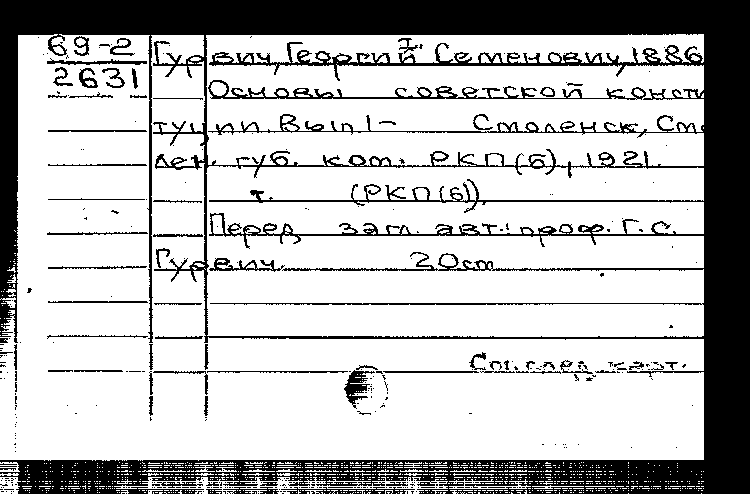 69-2
2631
Гурвич, Георгий Семенович, 1886
Основы советской консти
туции. Вып. 1- Смоленск, Смо
лен. губ. ком. РКП(б), 1921.
т. (РКП(б)).
Перед загл. авт.: проф. Г. С.
Гурвич. 20cm
См. след. карт.